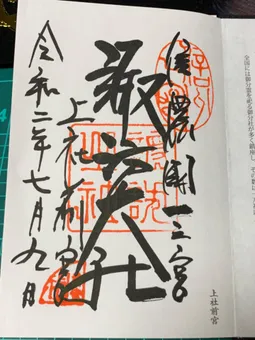 信濃國一之宮
諏訪大社
上社前宮
令和二年七月九日
上社前宮